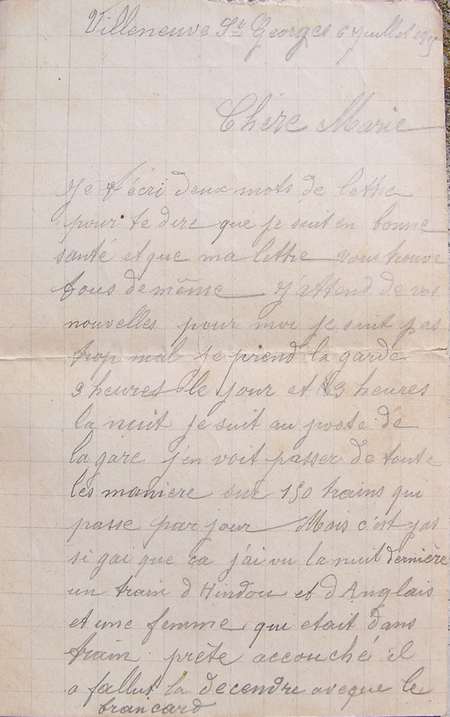 Villeneuve St Georges 6 juillet 1915
Chère Marie
Je t'écri deux mots de lettre
pour te dire que je suit en bonne
santé et que ma lettre vous trouve
tous de même J'attend de vos
nouvelles pour moi je suit pas
trop mal je prend la garde
3 heures le jour et 3 heures
la nuit je suit au poste de
la gare j'en voit passer de toute
les manière sur 150 trains qui
passe par jour Mais c'est pas
si gai que ca j'ai vu la nuit dernière
un train d Hindou et d'Anglais
et une femme qui etait dans
train prête accouché il
a fallut la decendre aveque le
brancard